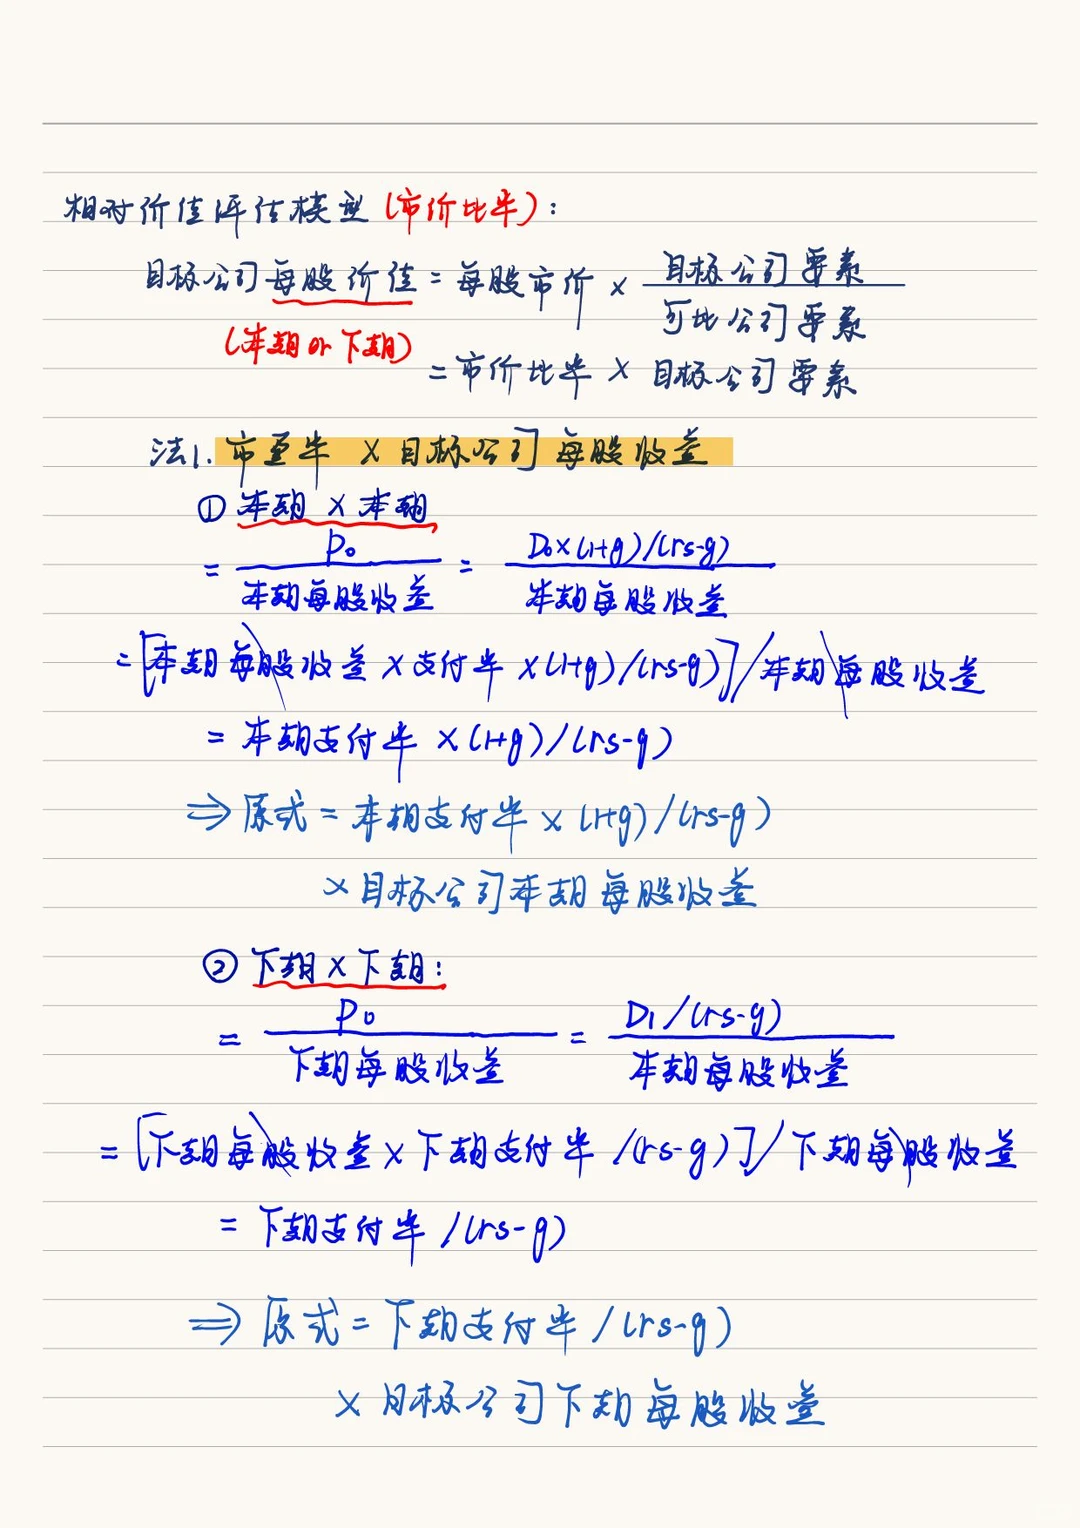 相对价值评估模型(市价比率):
目标公司每股价值=每股市价×目标公司要素/可比公司要素
(本期or下期)
=市价比率×目标公司要素
法1.市盈率×目标公司每股收益
①本期×本期
=P₀/本期每股收益=D₀×(1+g)/(rs-g)/本期每股收益
=[本期每股收益×支付率×(1+g)/(rs-g)]/本期每股收益
=本期支付率×(1+g)/(rs-g)
⇒原式=本期支付率×(1+g)/(rs-g)
×目标公司本期每股收益
②下期×下期:
=P₀/下期每股收益=D₁/(rs-g)/本期每股收益
=[下期每股收益×下期支付率/(rs-g)]/下期每股收益
=下期支付率/(rs-g)
⇒原式=下期支付率/(rs-g)
×目标公司下期每股收益